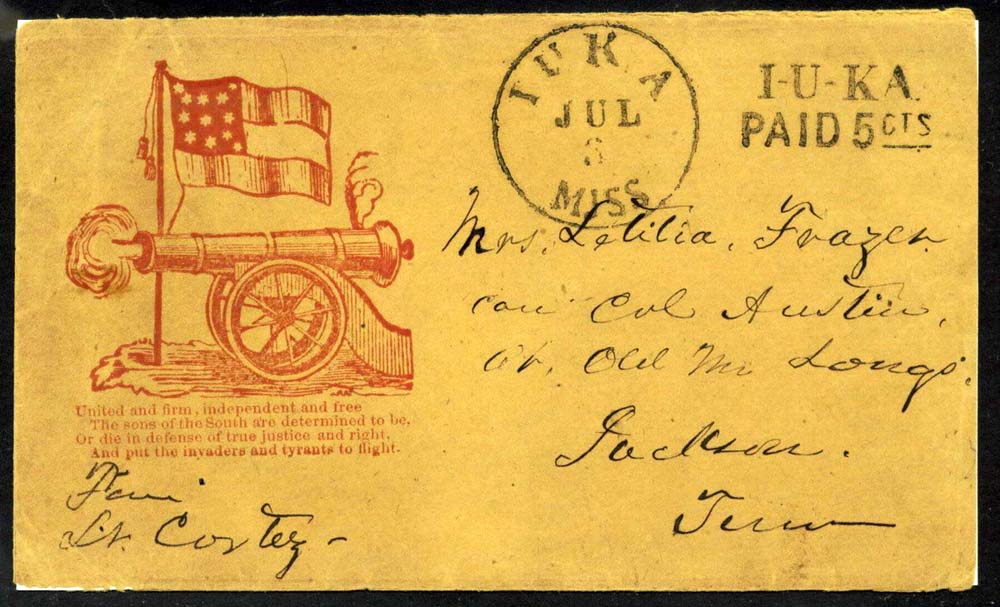 IUKA
JUL
3
MISS.
I-U-KA.
PAID 5 CTS
Mrs. Letitia. Frazer.
Col Austin,
at. Old Mr Longs.
Jackson.
Tenn
United and firm, independent and free
The sons of the South are determined to be,
Or die in defense of true justice and right,
And put the invaders and tyrants to flight.
Lt. Cortez -